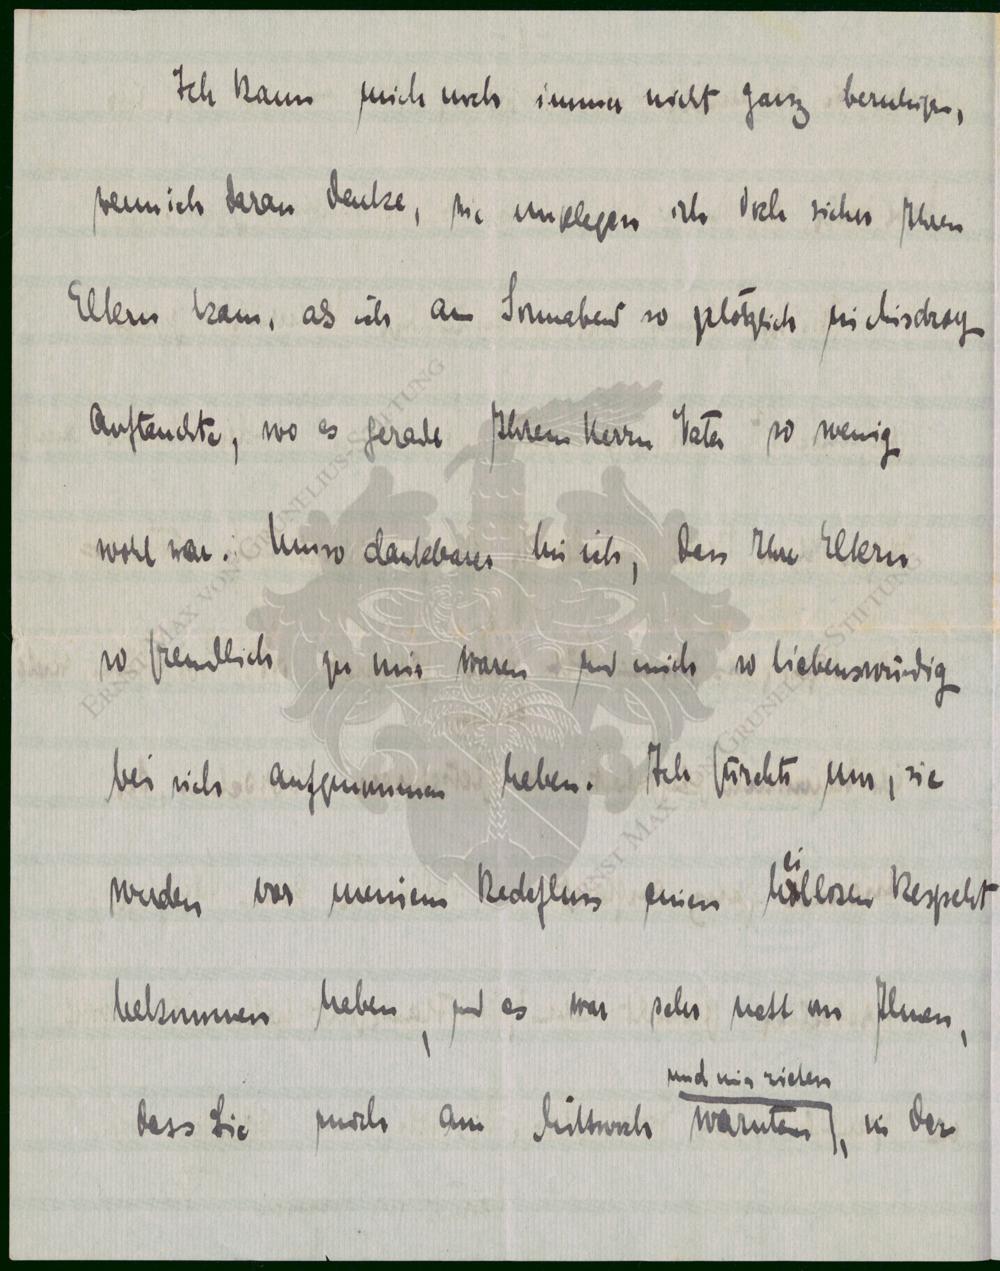 Ich kann mich noch immer nicht ganz beruhigen,
wenn ich daran denke, wie ungelegen ich doch sicher Ihren
Eltern kam, als ich am Sonnabend so plötzlich in
auftauchte, wo es gerade Ihrem Herrn Vater so wenig
wohl war. Umso dankbarer bin ich, dass Ihre Eltern
so freundlich zu mir waren und mich so liebenswürdig
bei sich aufgenommen haben. Ich fürchte nur, sie
werden vor meinem Redefluss einen heillosen Respekt
bekommen haben, und es war sehr nett von Ihnen,
und mir rieten
dass Sie mich am Mittwoch warnten, in der
ERNST MAX VON GRUNELIUS-STIFTUNG
ERNST MAX VON GRUNELIUS-STIFTUNG